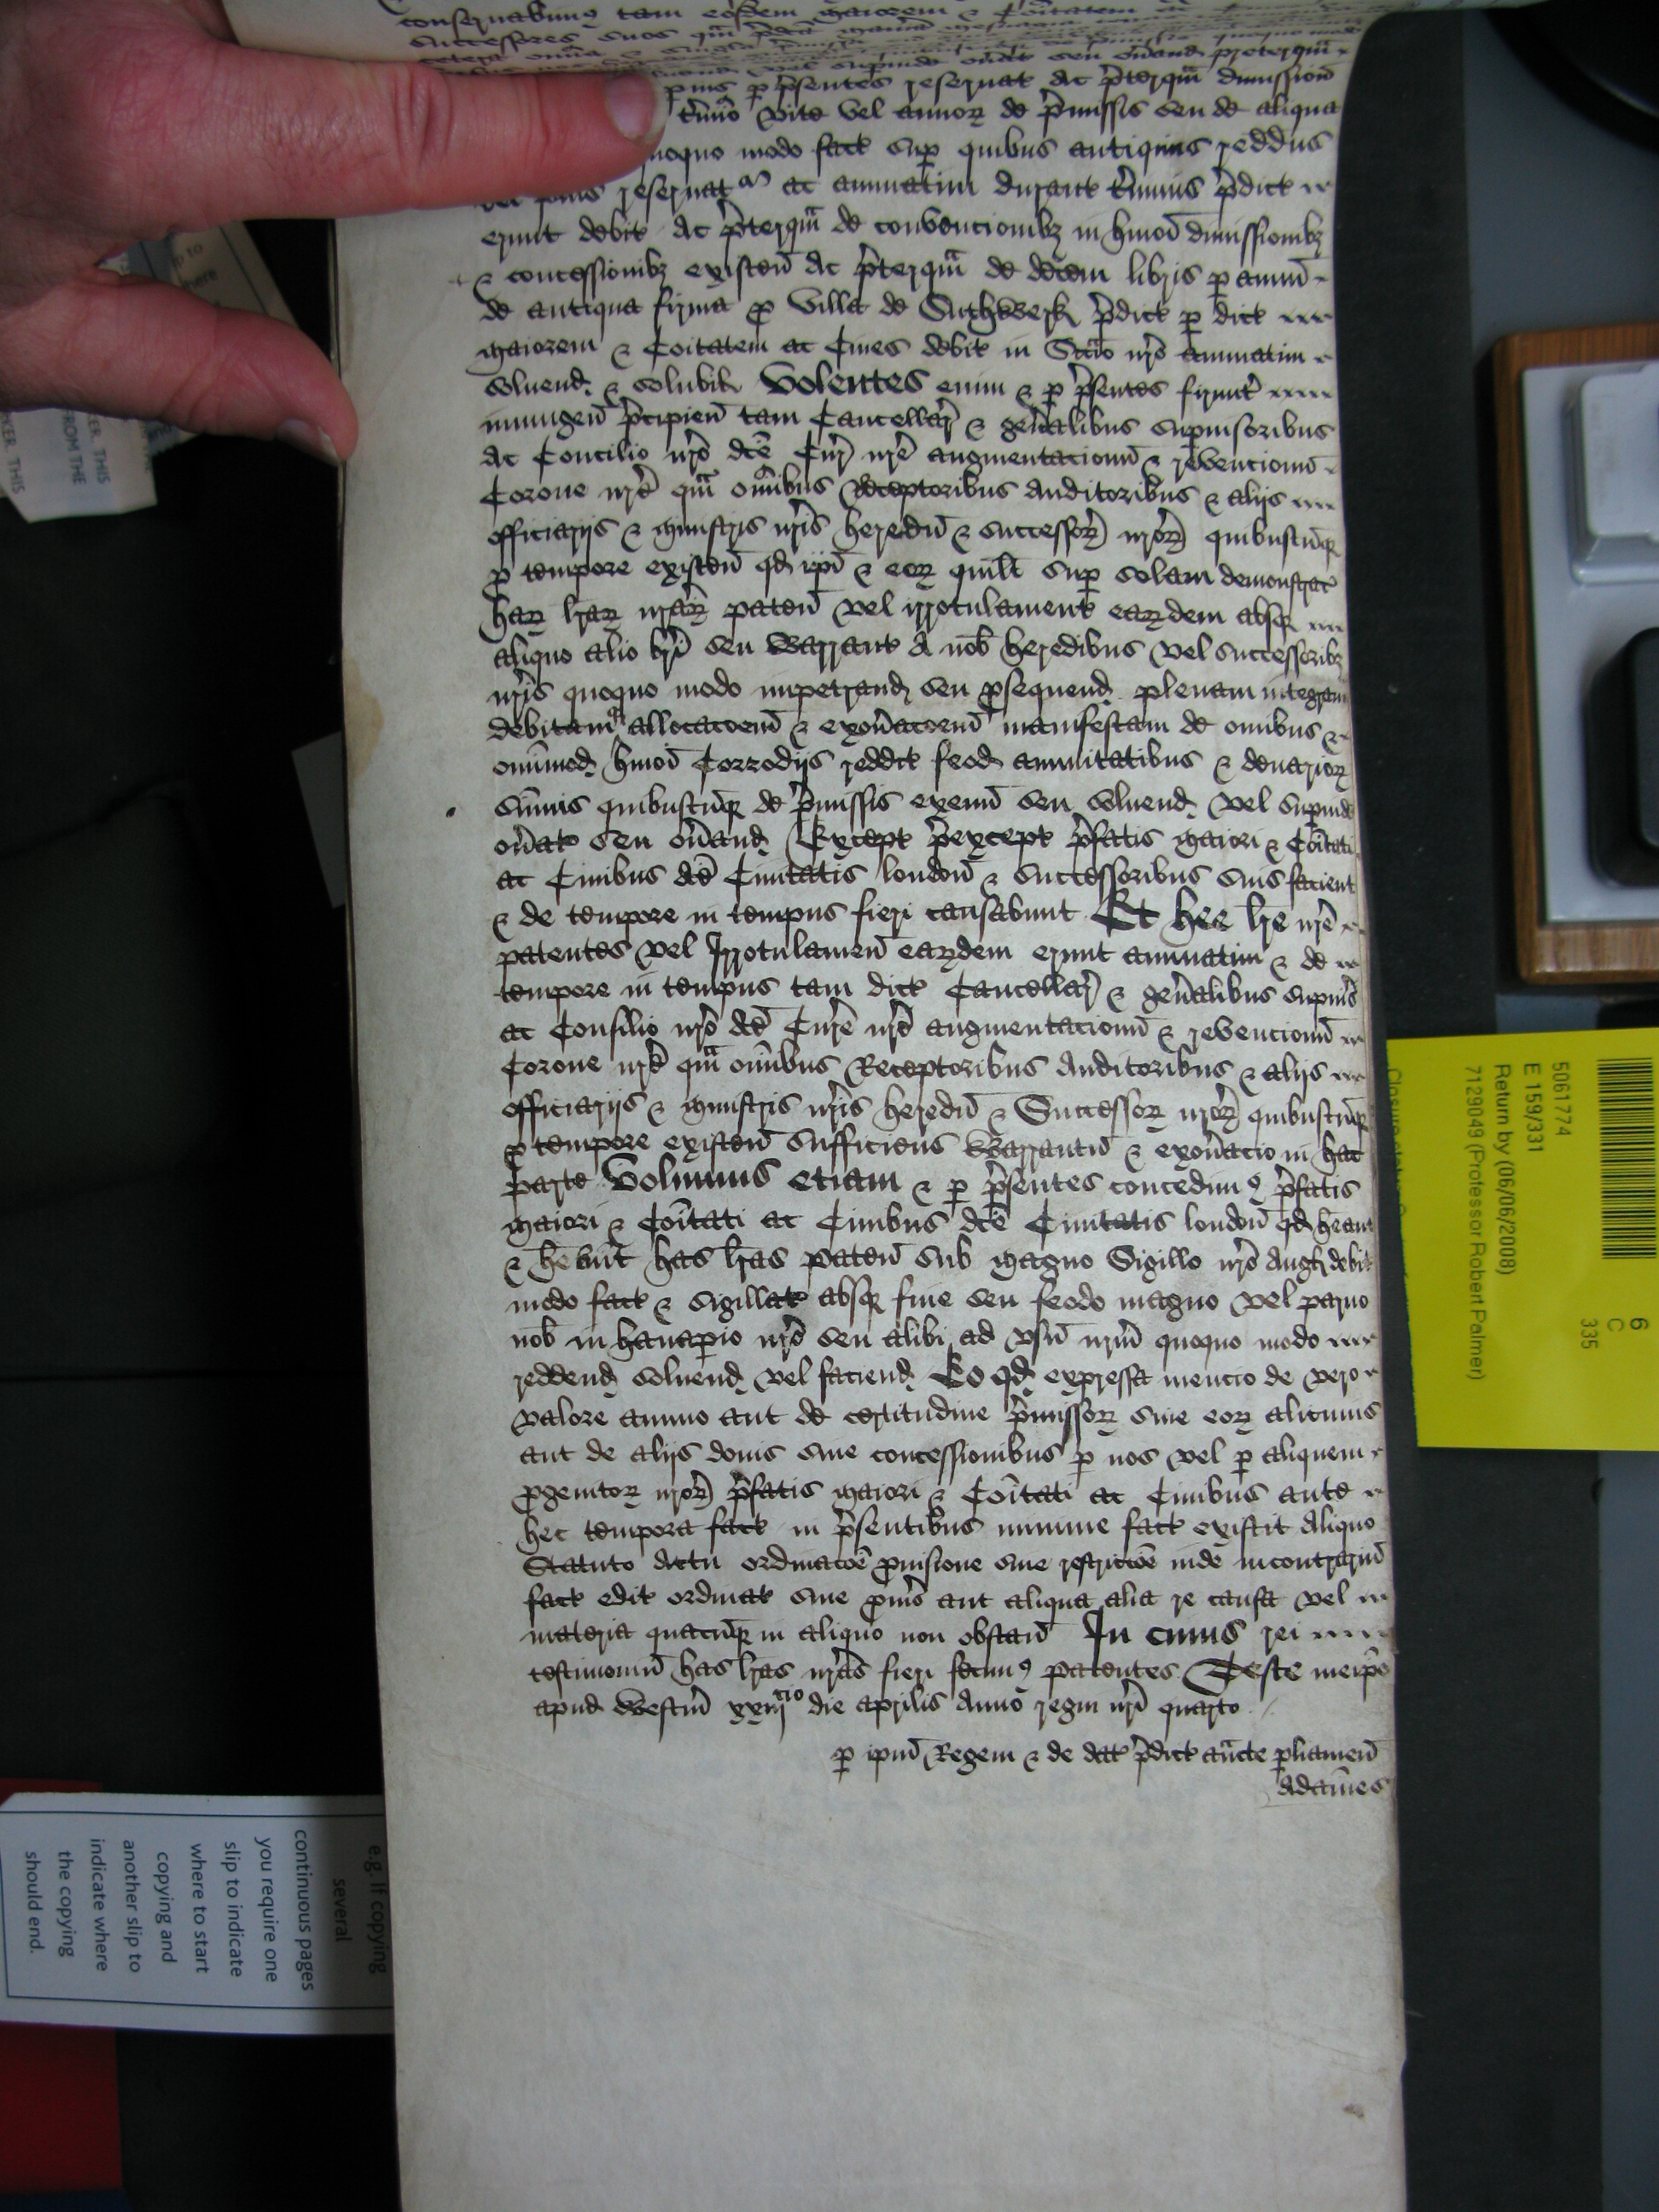 conseruabimus tam eosdem maiorem & Coitatem
successores suos qm
p pñsentes reseruat ac pterqm dimission
tmio vite vel annor de pmissis seu de aliqua
quoquo modo fact sup quibus antiquus reddus
reseruat ac annuatim durant tminis pdict
erunt debit Ac pterqm de convencionibz in hmoi dimissionibz
& concessionibz existen Ac pterqm de decem libris p annu
de antiqua firma p villa de Suthwerk pdict p dict
maiorem & Coitatem ac Ciues debit in Sccio nro annuatim
soluend & solubil Volentes enim & p psentes firmit
iniungen pcipien tam Cancellar & genalibus supuisoribus
Ac Concilio nro dce Cur nre augmentacionu & revencionu
Corone nre qm omibus Receptoribus Auditoribus & alijs
officiarijs & ministris nris heredu & successor nror quibuscuqz
p tempore existen qd ipi & eor quilt sup solam demonstrac
har lrar nrar paten vel irrotulament earzdem absqz
aliquo alio bri seu Warrant A nob heredibus vel successoribz
nris quoquo modo impetrand seu psequend plenam integram
debitamqz allocacoem & exonacoem manifestam de omibus &
omimod hmoi Corrodijs reddit feod annuitatibus & denarior
summis quibuscuqz de pmissis exeun seu soluend vel supinde
onat seu onand Except pexcept pfatis maiori & Coitati
ac Ciuibus dce Ciuitatis london & successoribus suis facient
& de tempore in tempus fieri causabunt Et hee lre nre
patentes vel Irrotulamen earzdem erunt annuatim & de
tempore in tempus tam dict Cancellar & genalibus supuis
ac Consilio nro dce Curie nre augmentacionu & revencionu
Corone nre qm omibus Receptoribus Auditoribus & alijs
officiarijs & ministris nris heredu & Successor nror quibuscuqz
p tempore existen sufficiens Warrantu & exonacio in hac
parte Volumus etiam & p psentes concedimus pfatis
maiori & Coitati ac Ciuibus dce Ciuitatis london qd heant
& hebunt has lras paten sub magno Sigillo nro Angl debit
modo fact & sigillat absqz fine seu feodo magno vel paruo
nob in hanapio nro seu alibi ad vsu nrm quoquo modo
reddend soluend vel faciend Eo qd expressa mencio de vero
valore annuo aut de certitudine pmissor siue eor alicuius
aut de alijs donis siue concessionibus p nos vel p aliquem
pgenitor nror pfatis maiori & Coitati ac Ciuibus ante
hec tempora fact in psentibus minime fact existit Aliquo
Statuto Actu ordinacoe puisione siue restriccoe inde incontrariu
fact edit ordinat siue puis aut aliqua alia re causa vel
materia quacuqz in aliquo non obstan In cuius rei
testimoniu has lras nras fieri fecimus patentes Teste meipo
apud Westm xxiijcio die aprilis Anno regni nri quarto
p ipm Regem & de dat pdict aucte pliamen
Adames
5061774
E 159/331
Return by (06/06/2008)
7129049 (Professor Robert Palmer)
6
C
335
e.g. If copying
several
continuous pages
you require one
slip to indicate
where to start
copying and
another slip to
indicate where
the copying
should end.